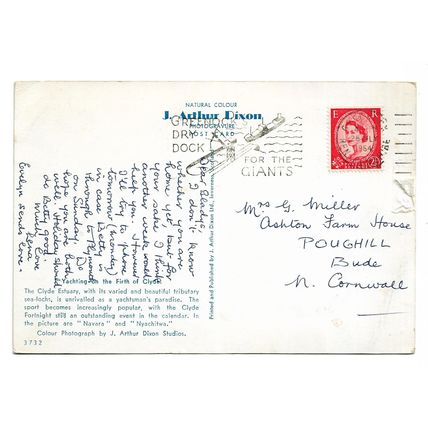 NATURAL COLOUR
J. Arthur Dixon
PHOTOGRAVURE
POST CARD
GREENOCK'S
DRY
DOCK
FOR THE
GIANTS
E R
1964
Dear Gladys,
I don't know
whether you are
home yet but for
your sakes I think
another week would
help you. However
I'll try to phone
tomorrow (Monday)
in case Betty is
through to Plymouth
on Sunday. Do
hope you are both
well. Holiday should
do Betty good
Much love
Evelyn sends love.
Printed and Published by J. Arthur Dixon Ltd., Inverness
Mrs G. Miller
Ashton Farm House
POUGHILL
Bude
N. Cornwall
Yachting on the Firth of Clyde
The Clyde Estuary, with its varied and beautiful tributary
sea-lochs, is unrivalled as a yachtsman's paradise. The
sport becomes increasingly popular, with the Clyde
Fortnight still an outstanding event in the calendar. In
the picture are "Navara" and "Nyachitwa."
Colour Photograph by J. Arthur Dixon Studios.
3732